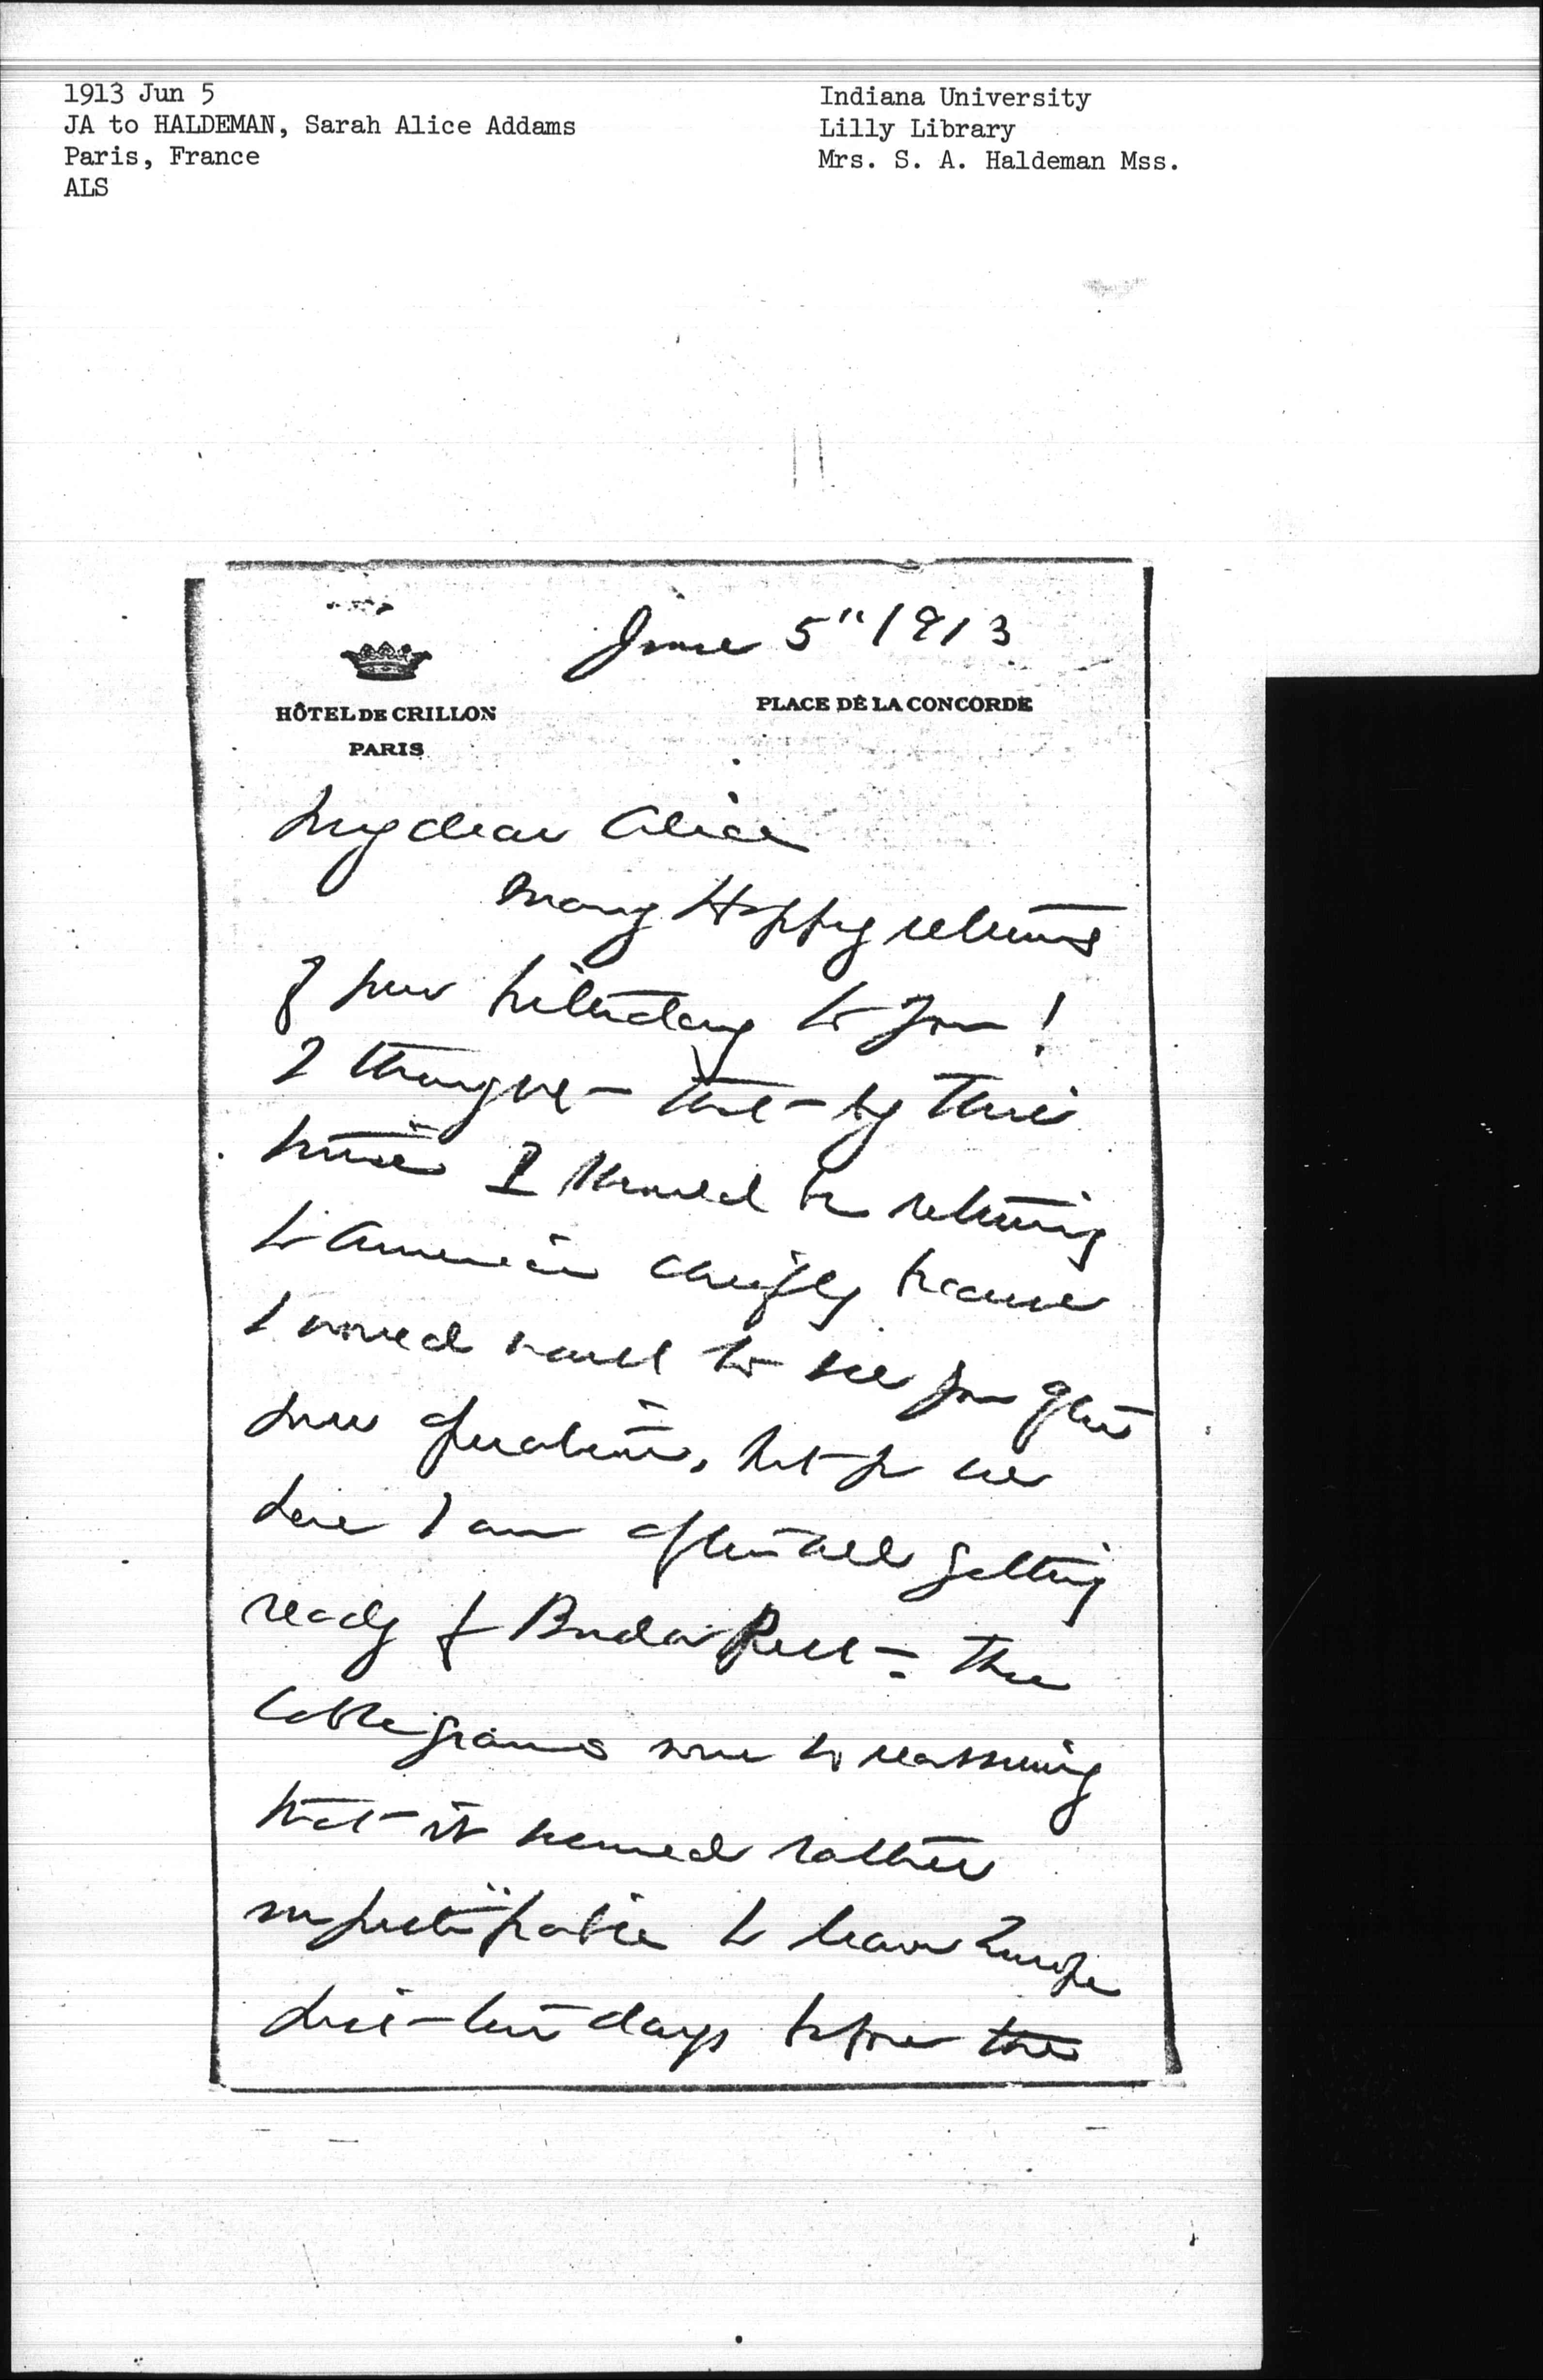 1913 Jun 5
JA to HALDEMAN, Sarah Alice Addams
Paris, France
ALS
Indiana University
Lilly Library
Mrs. S. A. Haldeman Mss.
June 5" 1913
HÔTEL DE CRILLON
PARIS
PLACE DE LA CONCORDE
My dear Alice
Many Happy returns
of your birthday to you!
I thought that by this
time I should be returning
to America chiefly because
I would want to see you after
your operation, but
here I am after all getting
ready for Buda Pest - The
cablegrams were so reassuring
that it seemed rather
to leave Europe
just ten days before the